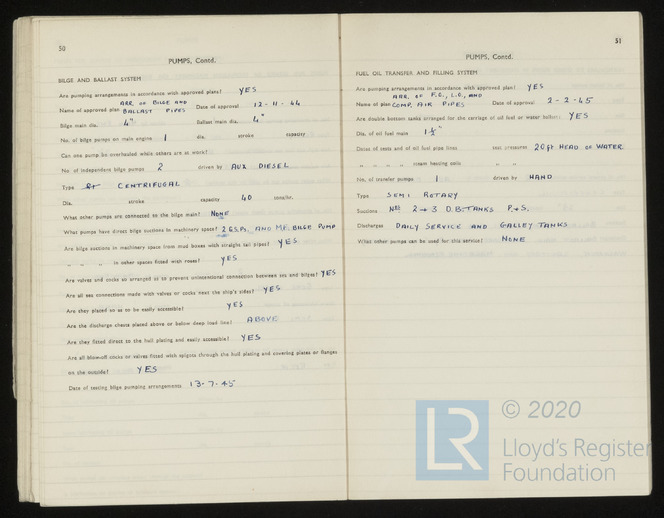 50
PUMPS, Contd.
BILGE AND BALLAST SYSTEM
Are pumping arrangements in accordance with approved plans? YES
Name of approved plan ARR. OF BILGE AND BALLAST PIPES Date of approval 12-11-44
Bilge main dia. 4" Ballast main dia. 4"
No. of bilge pumps on main engine 1 dia. stroke capacity
Can one pump be overhauled while others are at work?
No. of independent bilge pumps 2 driven by AUX DIESEL
Type CENTRIFUGAL
Dia. stroke capacity 40 tons/hr.
What other pumps are connected to the bilge main? NONE
What pumps have direct bilge suctions in machinery space? 2 G.S.Ps. AND M.E. BILGE PUMP
Are bilge suctions in machinery space from mud boxes with straight tail pipes? YES
" " " in other spaces fitted with roses? YES
Are valves and cocks so arranged as to prevent unintentional connection between sea and bilges? YES
Are all sea connections made with valves or cocks next the ship's sides? YES
Are they placed so as to be easily accessible? YES
Are the discharge chests placed above or below deep load line? ABOVE
Are they fitted direct to the hull plating and easily accessible? YES
Are all blow-off cocks or valves fitted with spigots through the hull plating and covering plates or flanges
on the outside? YES
Date of testing bilge pumping arrangements 13-7-45
51
PUMPS, Contd.
FUEL OIL TRANSFER AND FILLING SYSTEM
Are pumping arrangements in accordance with approved plan? YES
Name of plan ARR. OF F.O., L.O., AND COMP. AIR PIPES Date of approval 2-2-45
Are double bottom tanks arranged for the carriage of oil fuel or water ballast? YES
Dia. of oil fuel main
Dates of tests and of oil fuel pipe lines test pressures 20 ft HEAD OF WATER.
" " " " steam heating coils " "
No. of transfer pumps 1 driven by HAND
Type SEMI ROTARY
Suctions Nos 2 → 3 D.B. TANKS P.→S.
Discharges DAILY SERVICE AND GALLEY TANKS
What other pumps can be used for this service? NONE
LR
© 2020
Lloyd's Register
Foundation